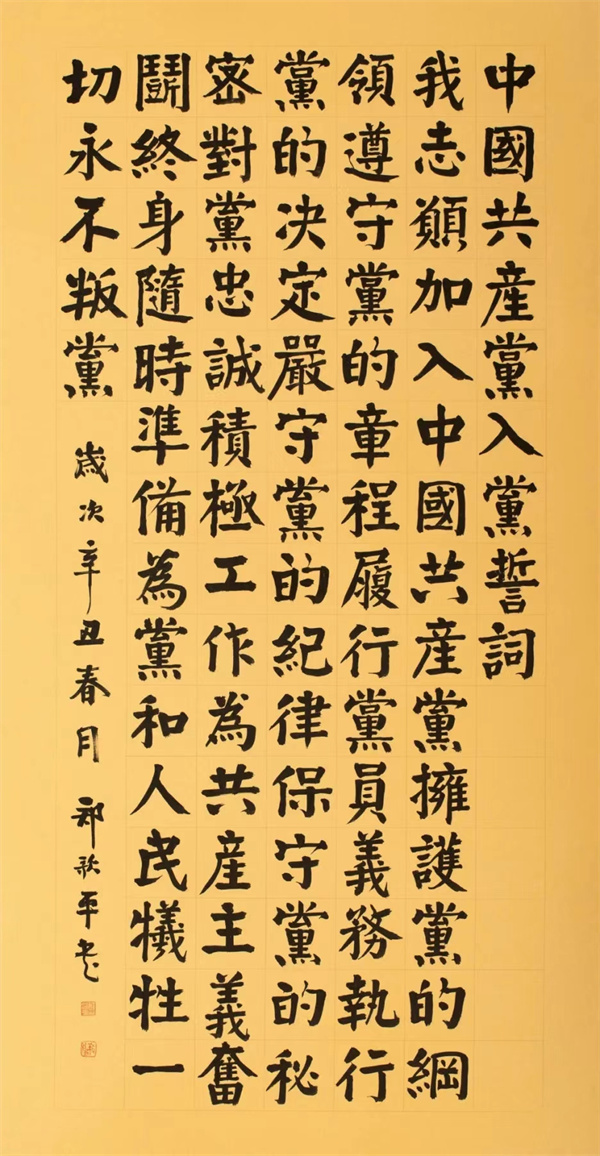 中國共産黨入黨誓詞
我志願加入中國共産黨擁護黨的綱
領遵守黨的章程履行黨員義務執行
黨的决定嚴守黨的紀律保守黨的秘
密對黨忠誠積極工作為共産主義奮
鬬終身隨時準備為黨和人民犧牲一
切永不叛黨 歲次辛丑春月 郑歌平书